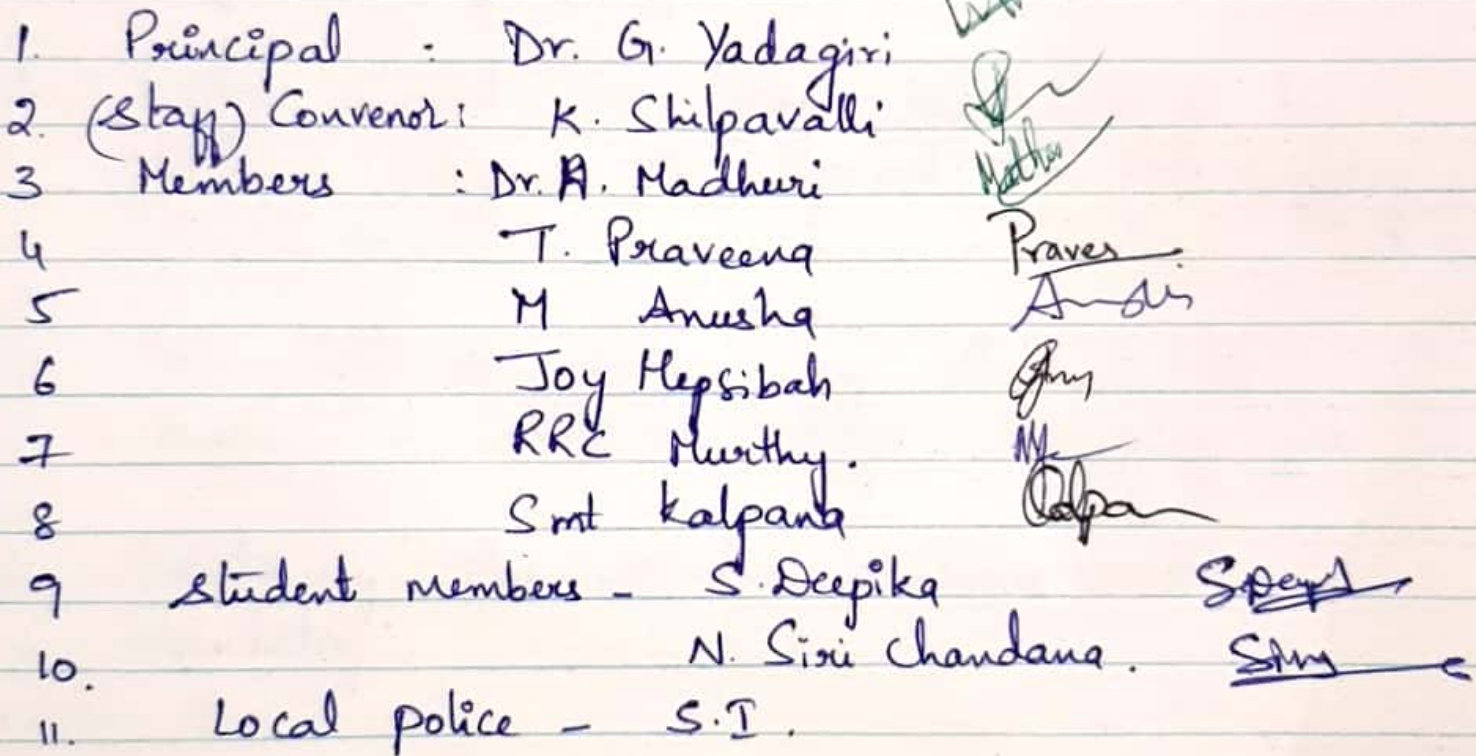 1. Principal : Dr. G. Yadagiri
2. (Staff) Convenor: K. Shilpavalli
3 Members : Dr. A. Madhuri
4 T. Praveena Praves
5 M Anusha
6 Joy Hepsibah
7 RRC Murthy.
8 Smt Kalpana Kalpan
9 Student members - S. Deepika
10. N. Siri Chandana.
11. Local police - S.I.